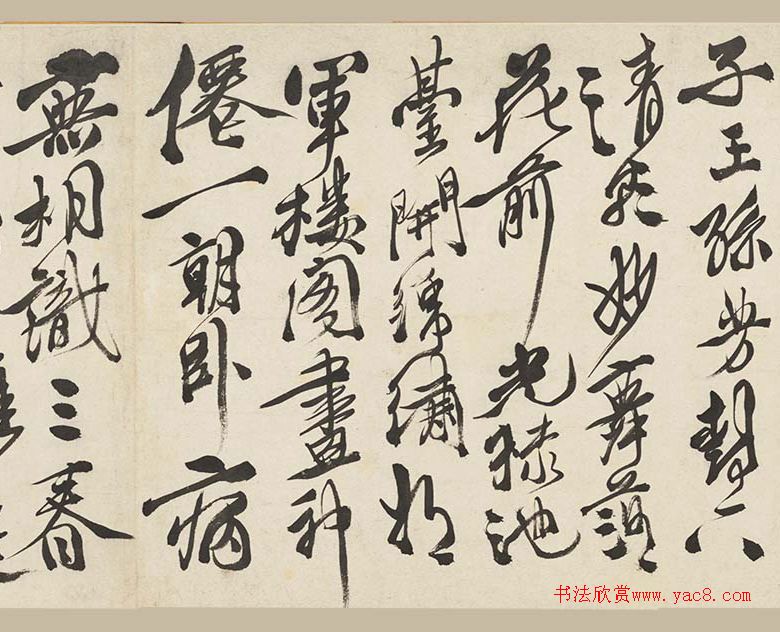 子王孫芳樹下
清歌妙舞落
花前光祿池
臺開錦繡將
軍樓閣畫神
僊一朝卧病
無相識三春
书法欣赏www.yac8.com